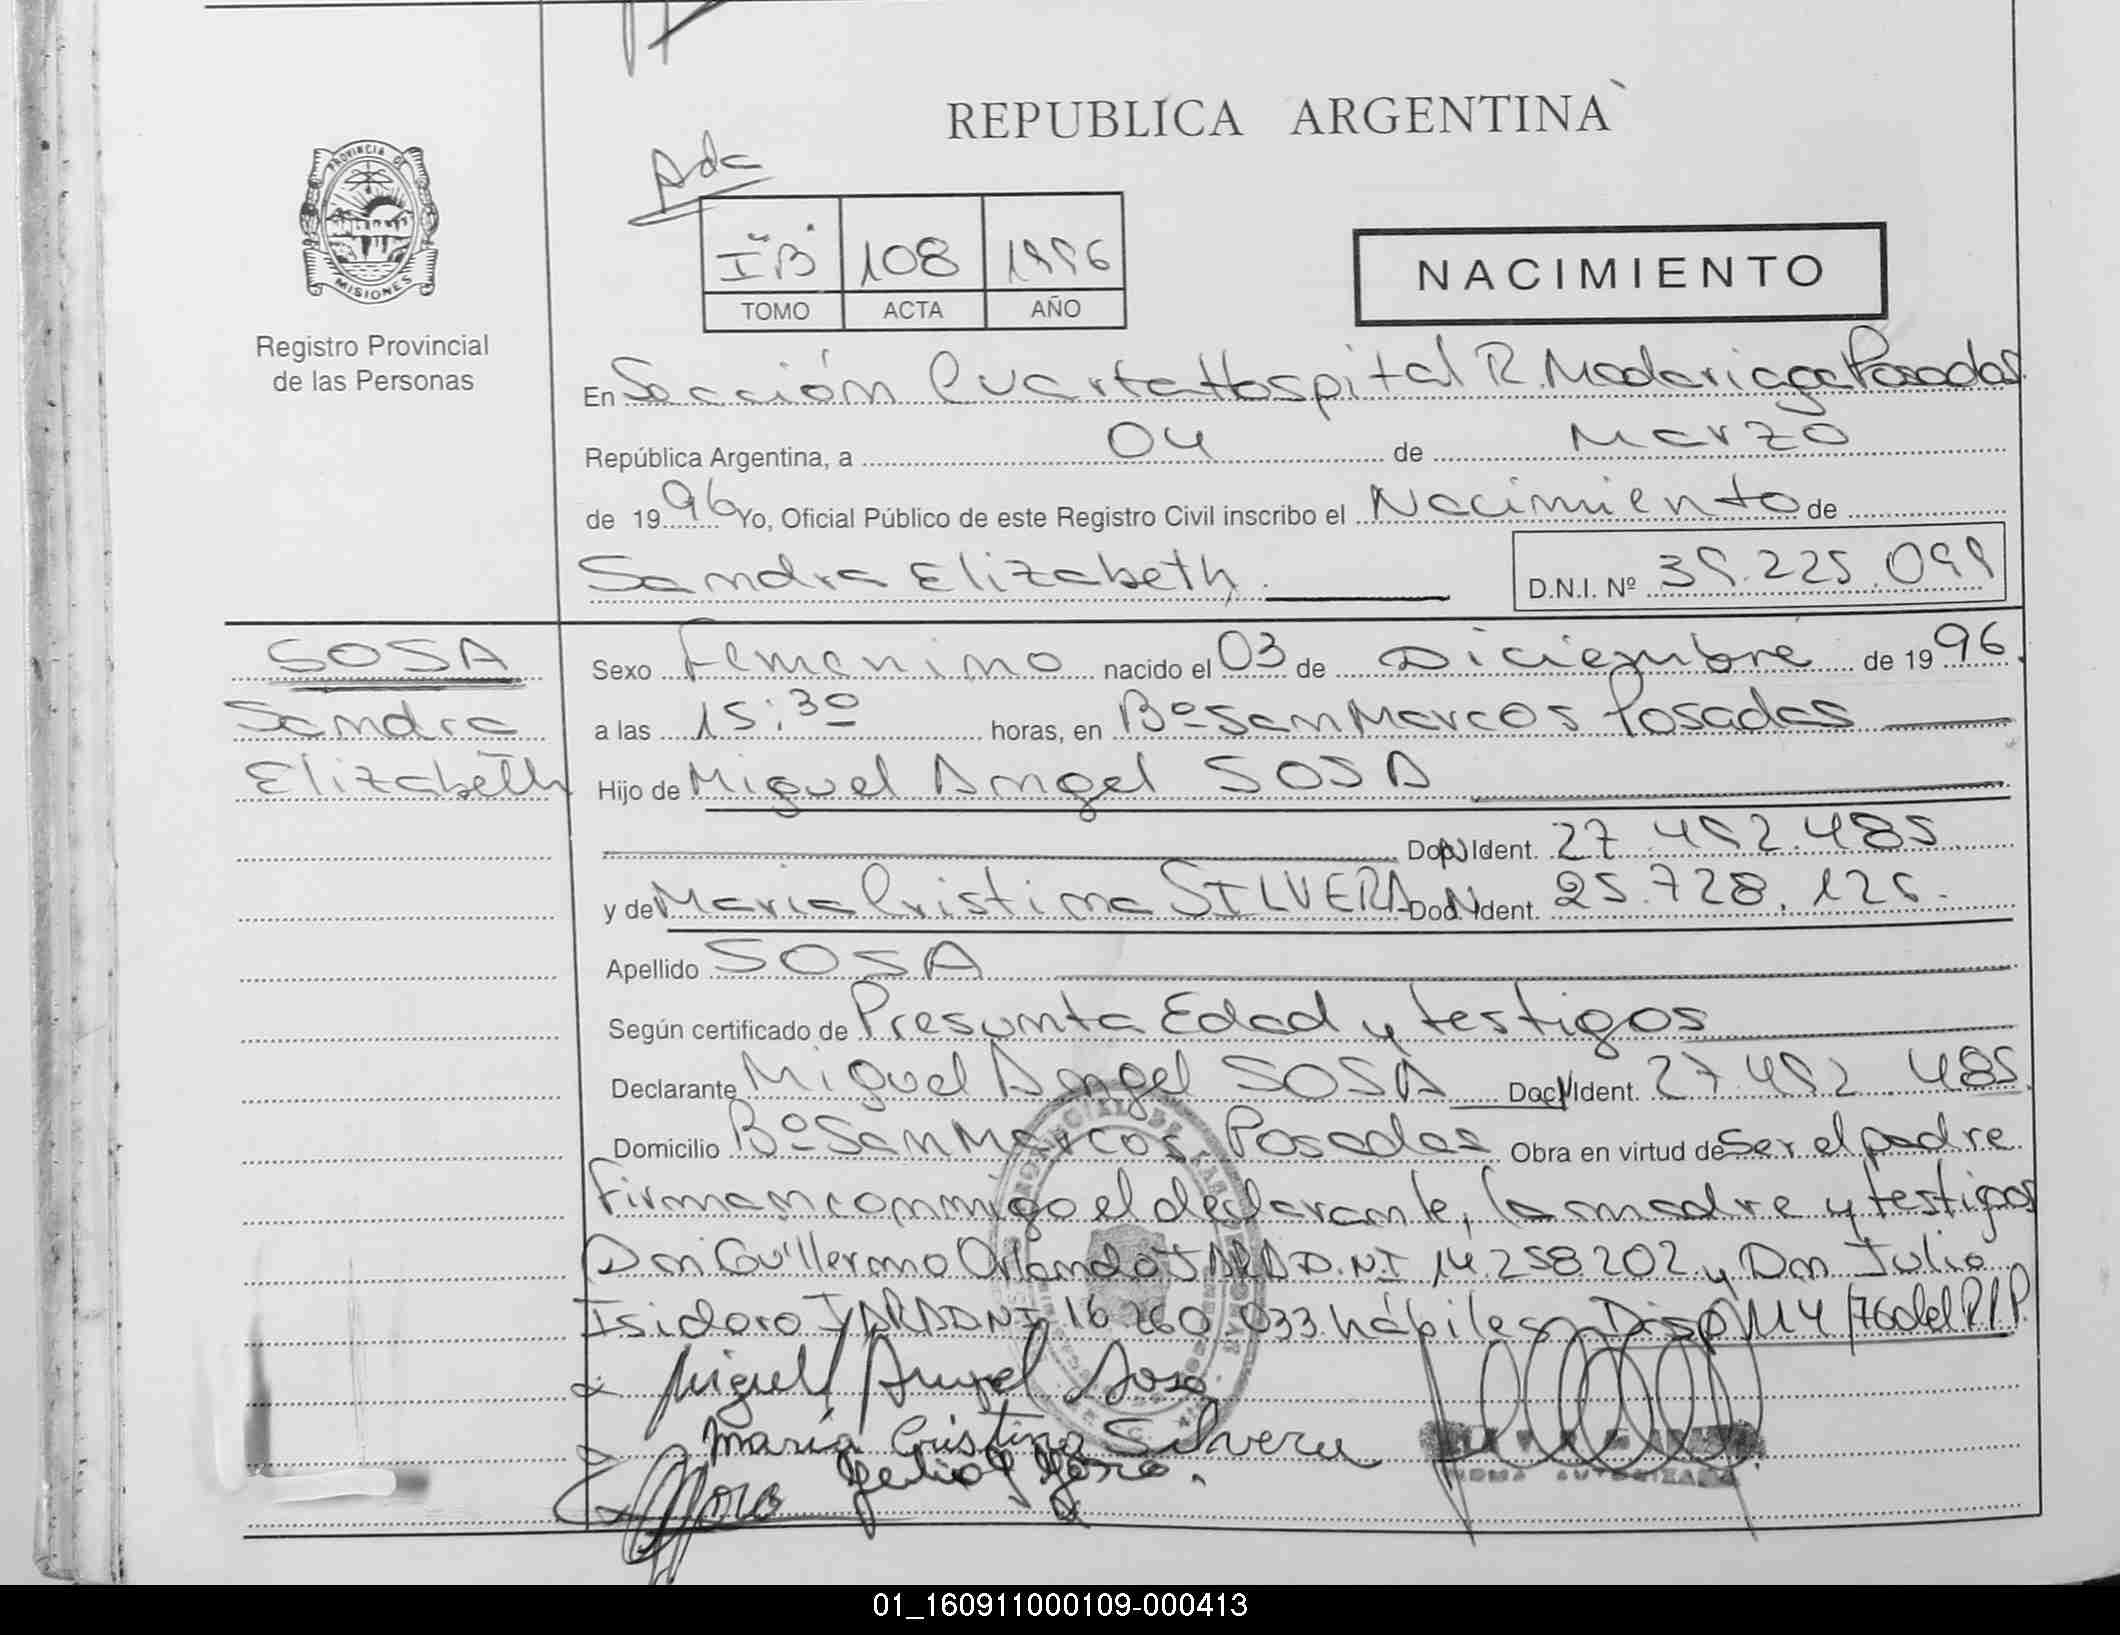 REPUBLICA ARGENTINA
Ada
PROVINCIA DE
MISIONES
Registro Provincial
de las Personas
I "B" 108 1996
TOMO ACTA AÑO
NACIMIENTO
En Sección Cuarta Hospital R. Madariaga Posadas
República Argentina, a 04 de Marzo
de 1996 Yo, Oficial Público de este Registro Civil inscribo el Nacimiento de
Sandra Elizabeth.
D.N.I. Nº 39.225.099
SOSA
Sandra
Elizabeth
Sexo Femenino nacido el 03 de Diciembre de 1996.
a las 15:30 horas, en Bº San Marcos Posadas
Hijo de Miguel Angel SOSA
Doc. Ident. 27.492.485
y de Maria Cristina SILVERA Doc. Ident. 25.728.126.
Apellido SOSA
Según certificado de Presunta Edad y testigos
Declarante Miguel Angel SOSA Doc. Ident. 27.492.485.
Domicilio Bº San Marcos Posadas Obra en virtud de Ser el padre
Firman conmigo el declarante, la madre y testigos
Don Guillermo Orlando JARA D.N.I 14.258.202 y Don Julio
Isidoro JARA DNI 16.260.033 hábiles Disp Nº 114/76 del R.P.P.
Miguel Angel Sosa
María Cristina Silvera
01_160911000109-000413